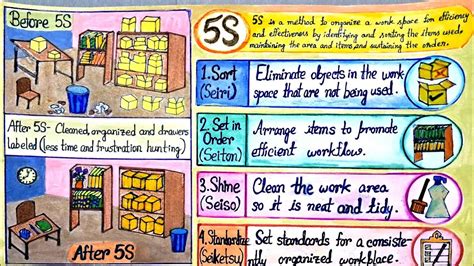 Before 5S
After 5S- Cleaned, organized and drawers
labeled (less time and frustration hunting)
After 5S
5S
5S is a method to organize a work space for efficiency
and effectiveness by identifying and sorting the items used
maintaining the area and items, and sustaining the order.
1.Sort
(Seiri)
Eliminate objects in the work
space that are not being used.
2. Set in
Order
(Seiton)
Arrange items to promote
efficient workflow.
3. Shine
(Seiso)
Clean the work area
so it is neat and tidy.
4. Standardize
(Seiketsu)
Set standards for a consiste-
ntly organized workplace.